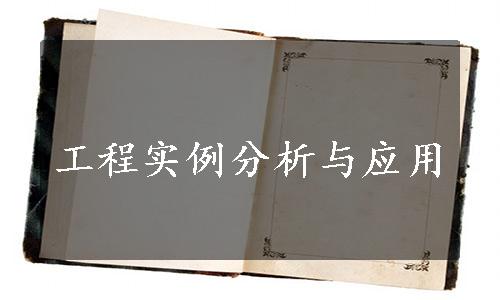 工程实例分析与应用